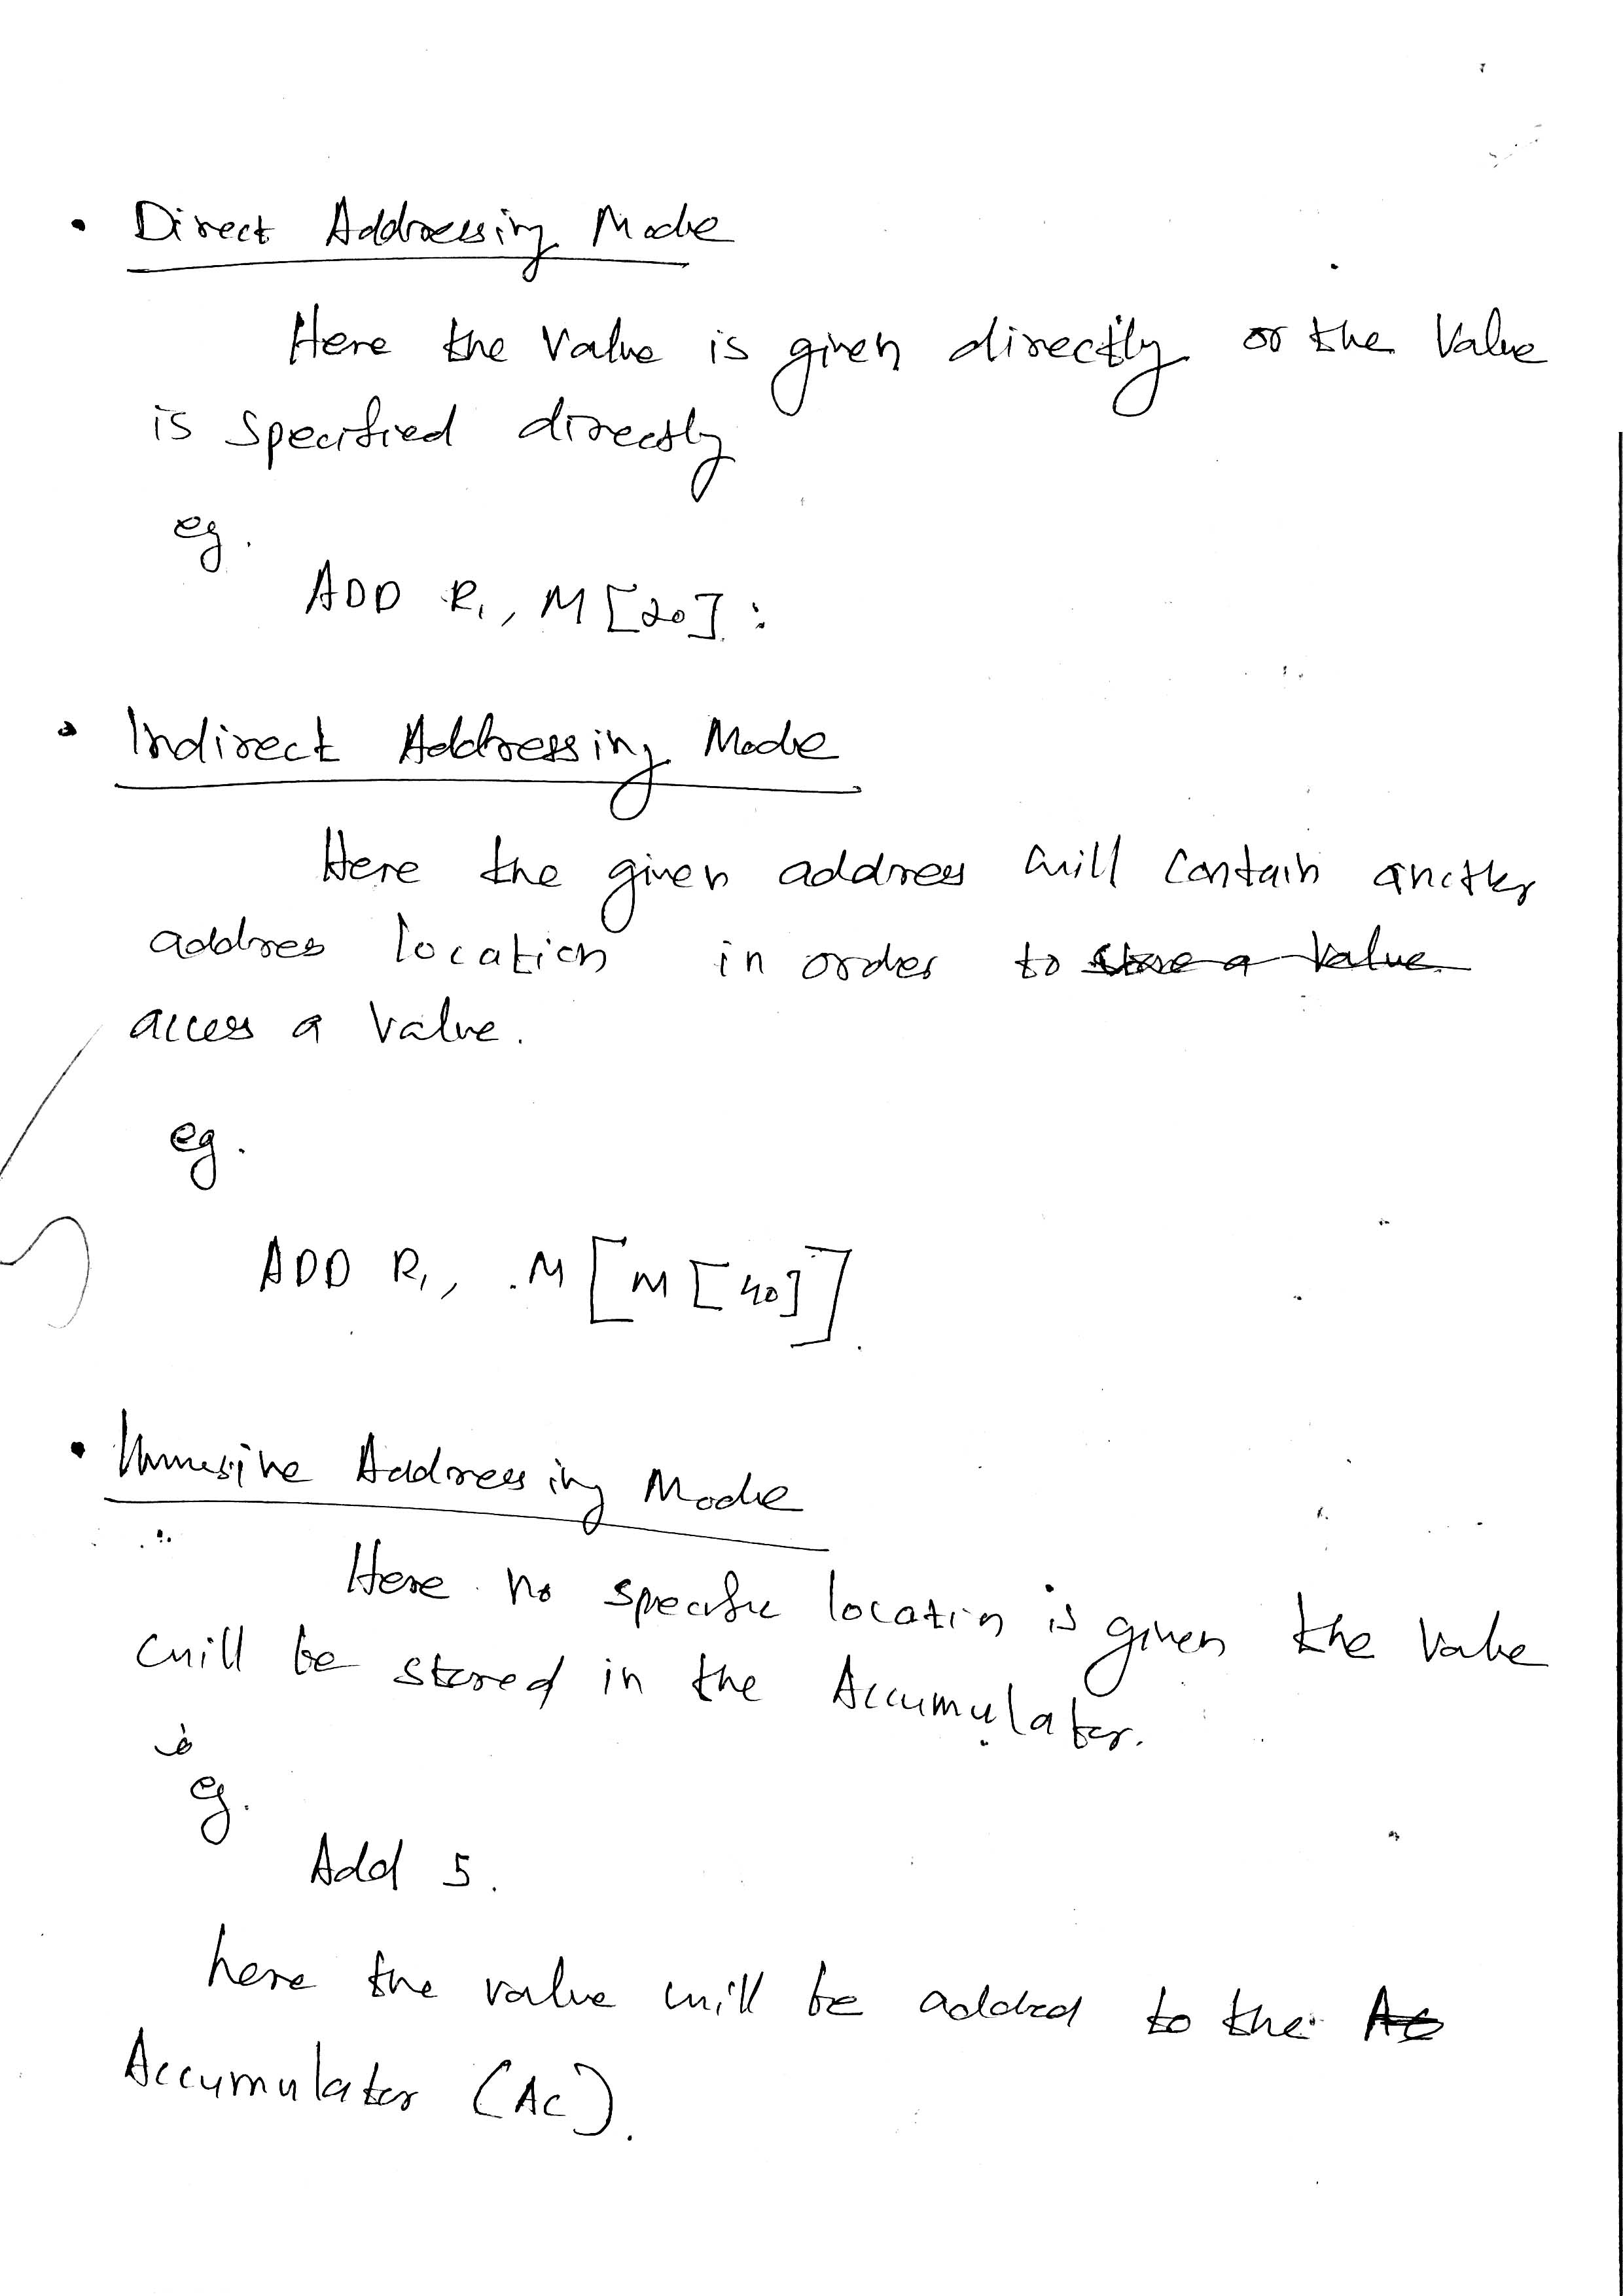 • Direct Addressing Mode
Here the value is given directly or the value
is specified directly
eg.
ADD R1, M[20]:
• Indirect Addressing Mode
Here the given address will contain another
address location in order to store a value
access a value.
eg.
ADD R1, M[M[40]].
• Addressing Mode
Here no specific location is given the value
will be stored in the Accumulator.
eg.
Add 5.
here the value will be added to the Ac
Accumulator (AC).